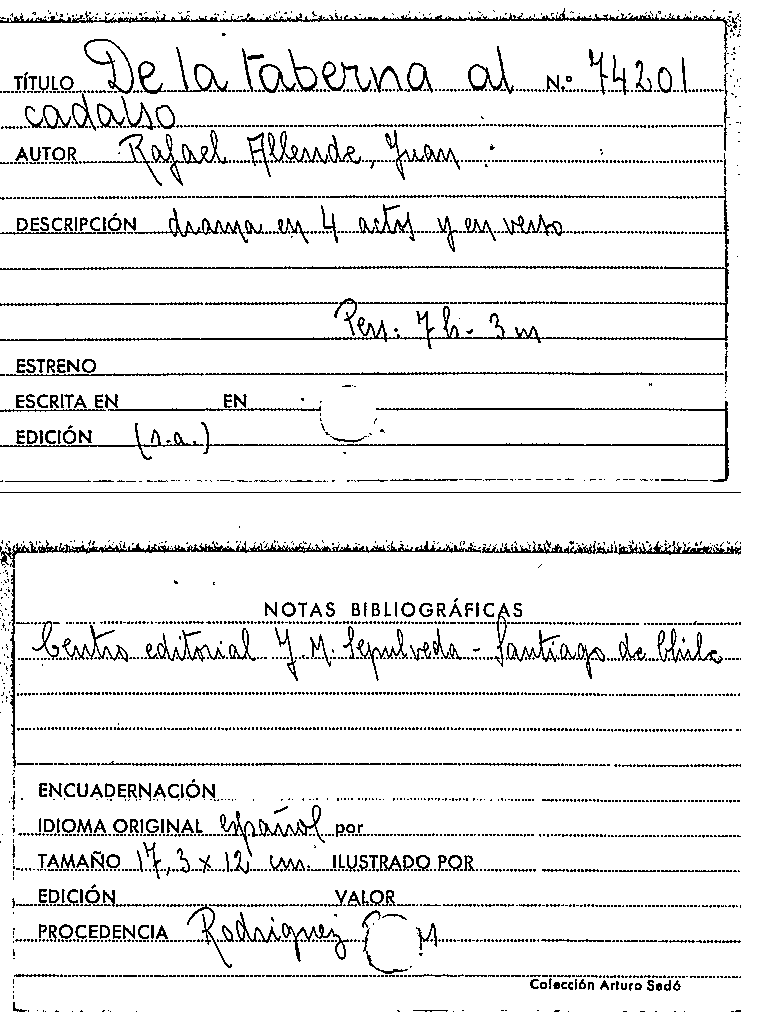 TÍTULO De la taberna al N.º 74201
cadalso
AUTOR Rafael Allende, Juan
DESCRIPCIÓN drama en 4 actos y en verso
Pers: 7 h - 3 m
ESTRENO
ESCRITA EN EN
EDICIÓN (s.a.)
NOTAS BIBLIOGRÁFICAS
Centro editorial J. M. Sepulveda - Santiago de Chile
ENCUADERNACIÓN
IDIOMA ORIGINAL español por
TAMAÑO 17,3 x 12 cm. ILUSTRADO POR
EDICIÓN VALOR
PROCEDENCIA Rodriguez M
Colección Arturo Sedó